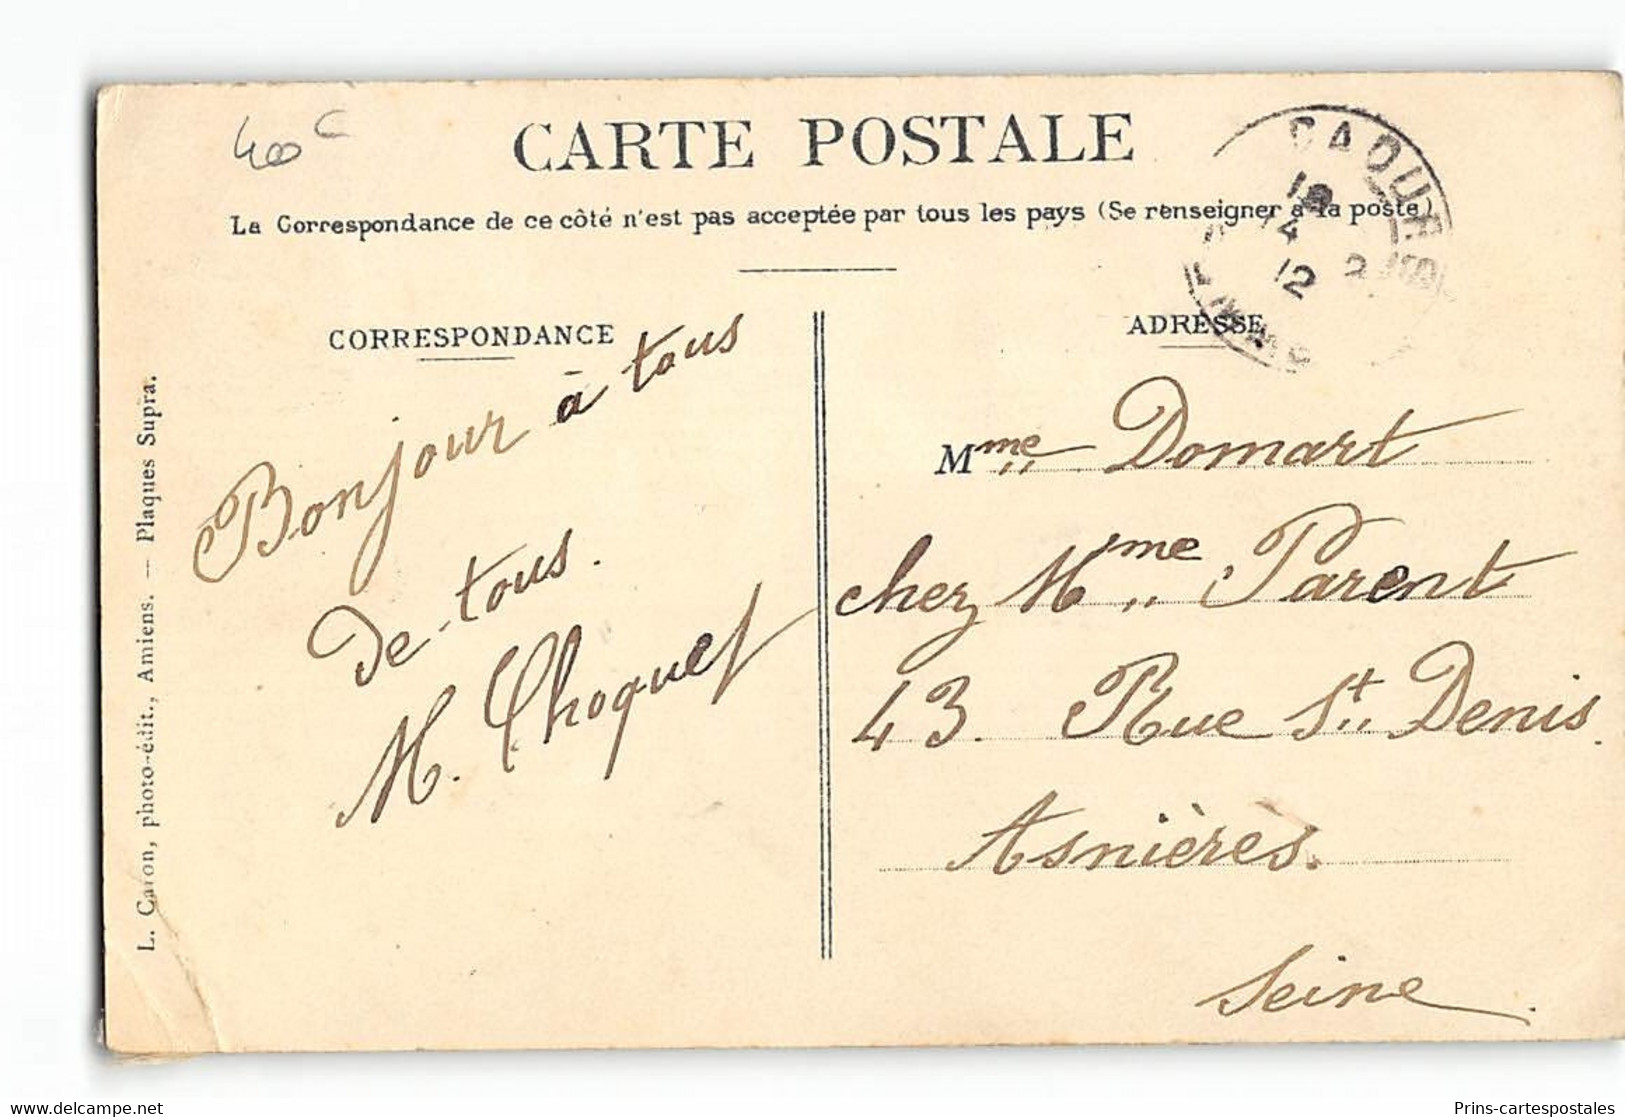 400 c
CARTE POSTALE
La Correspondance de ce côté n'est pas acceptée par tous les pays (Se renseigner à la poste)
12
CORRESPONDANCE
Bonjour à tous
de tous.
M. Choquet
ADRESSE
Mme Domart
chez Mme Parent
43. Rue St Denis.
Asnières.
Seine
L. Caron, photo-édit., Amiens. — Plaques Supra.
www.delcampe.net
Prins-cartespostales